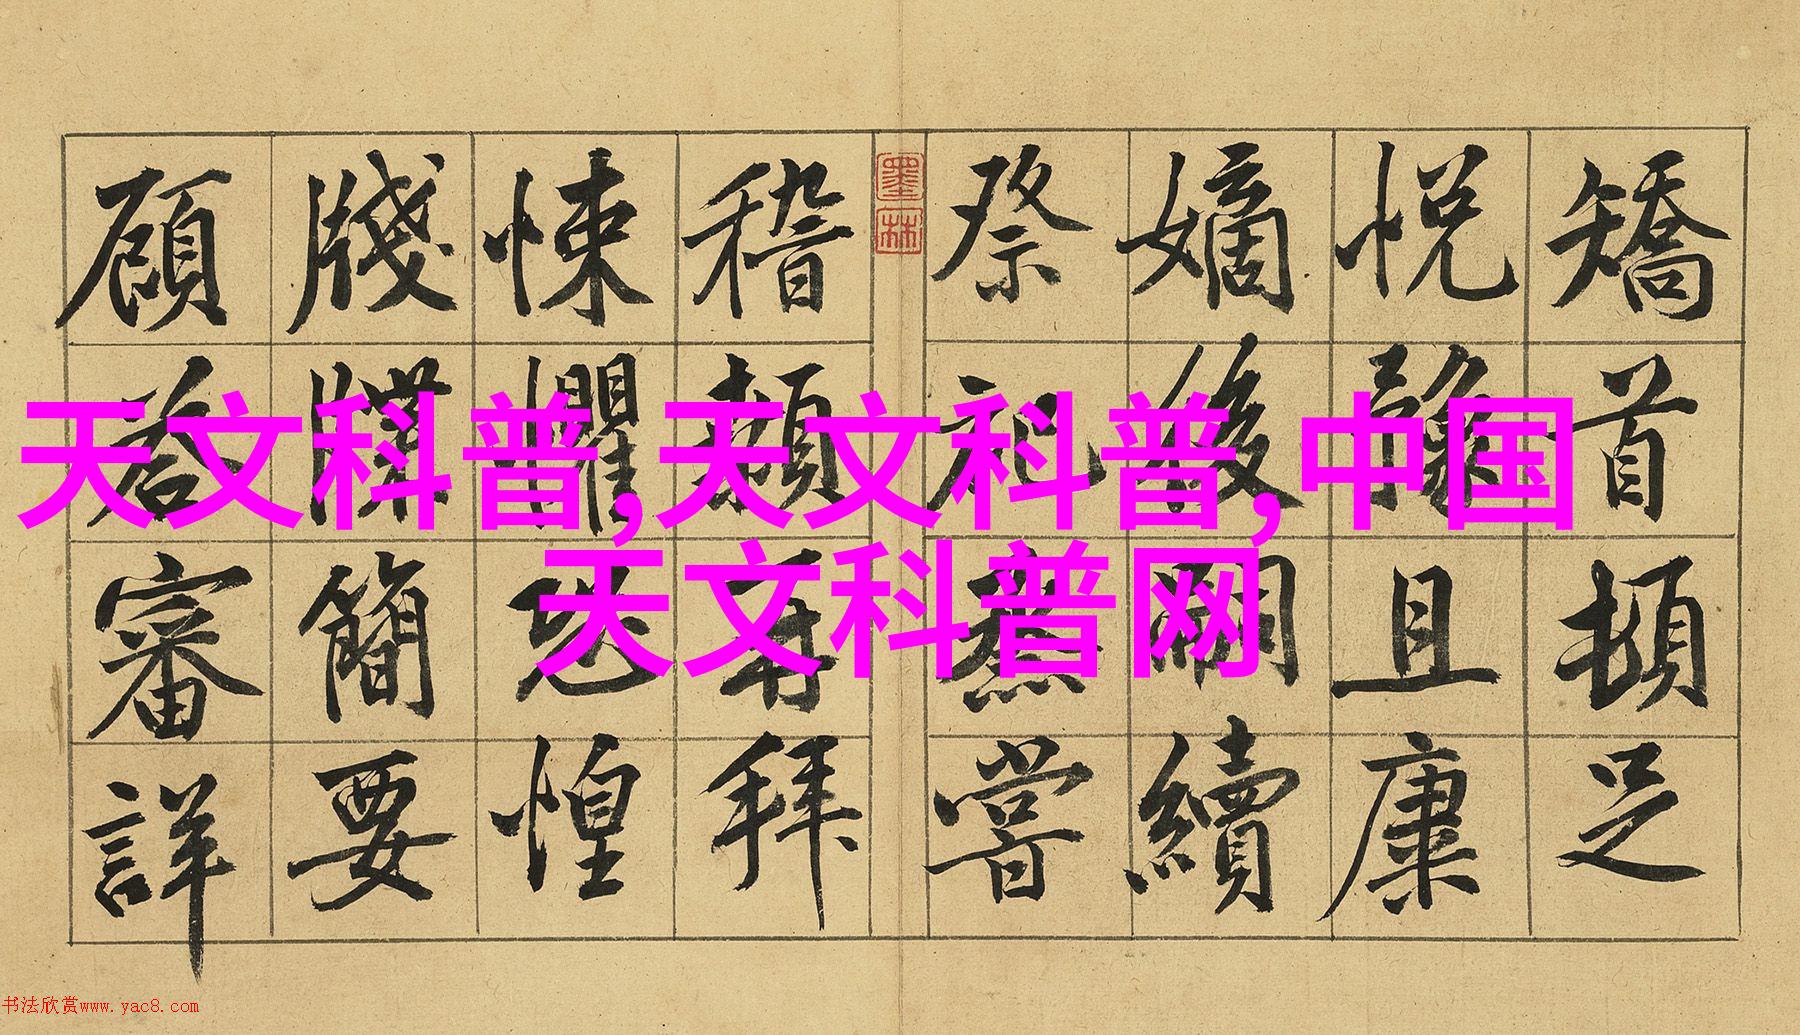 矯首頓足
悦豫且康
嫡後嗣續
祭祀蒸嘗
墨林
稽顙再拜
悚懼恐惶
牋牒簡要
顧答審詳
天文科普,天文科普,中国
天文科普网
书法欣赏www.yac8.com